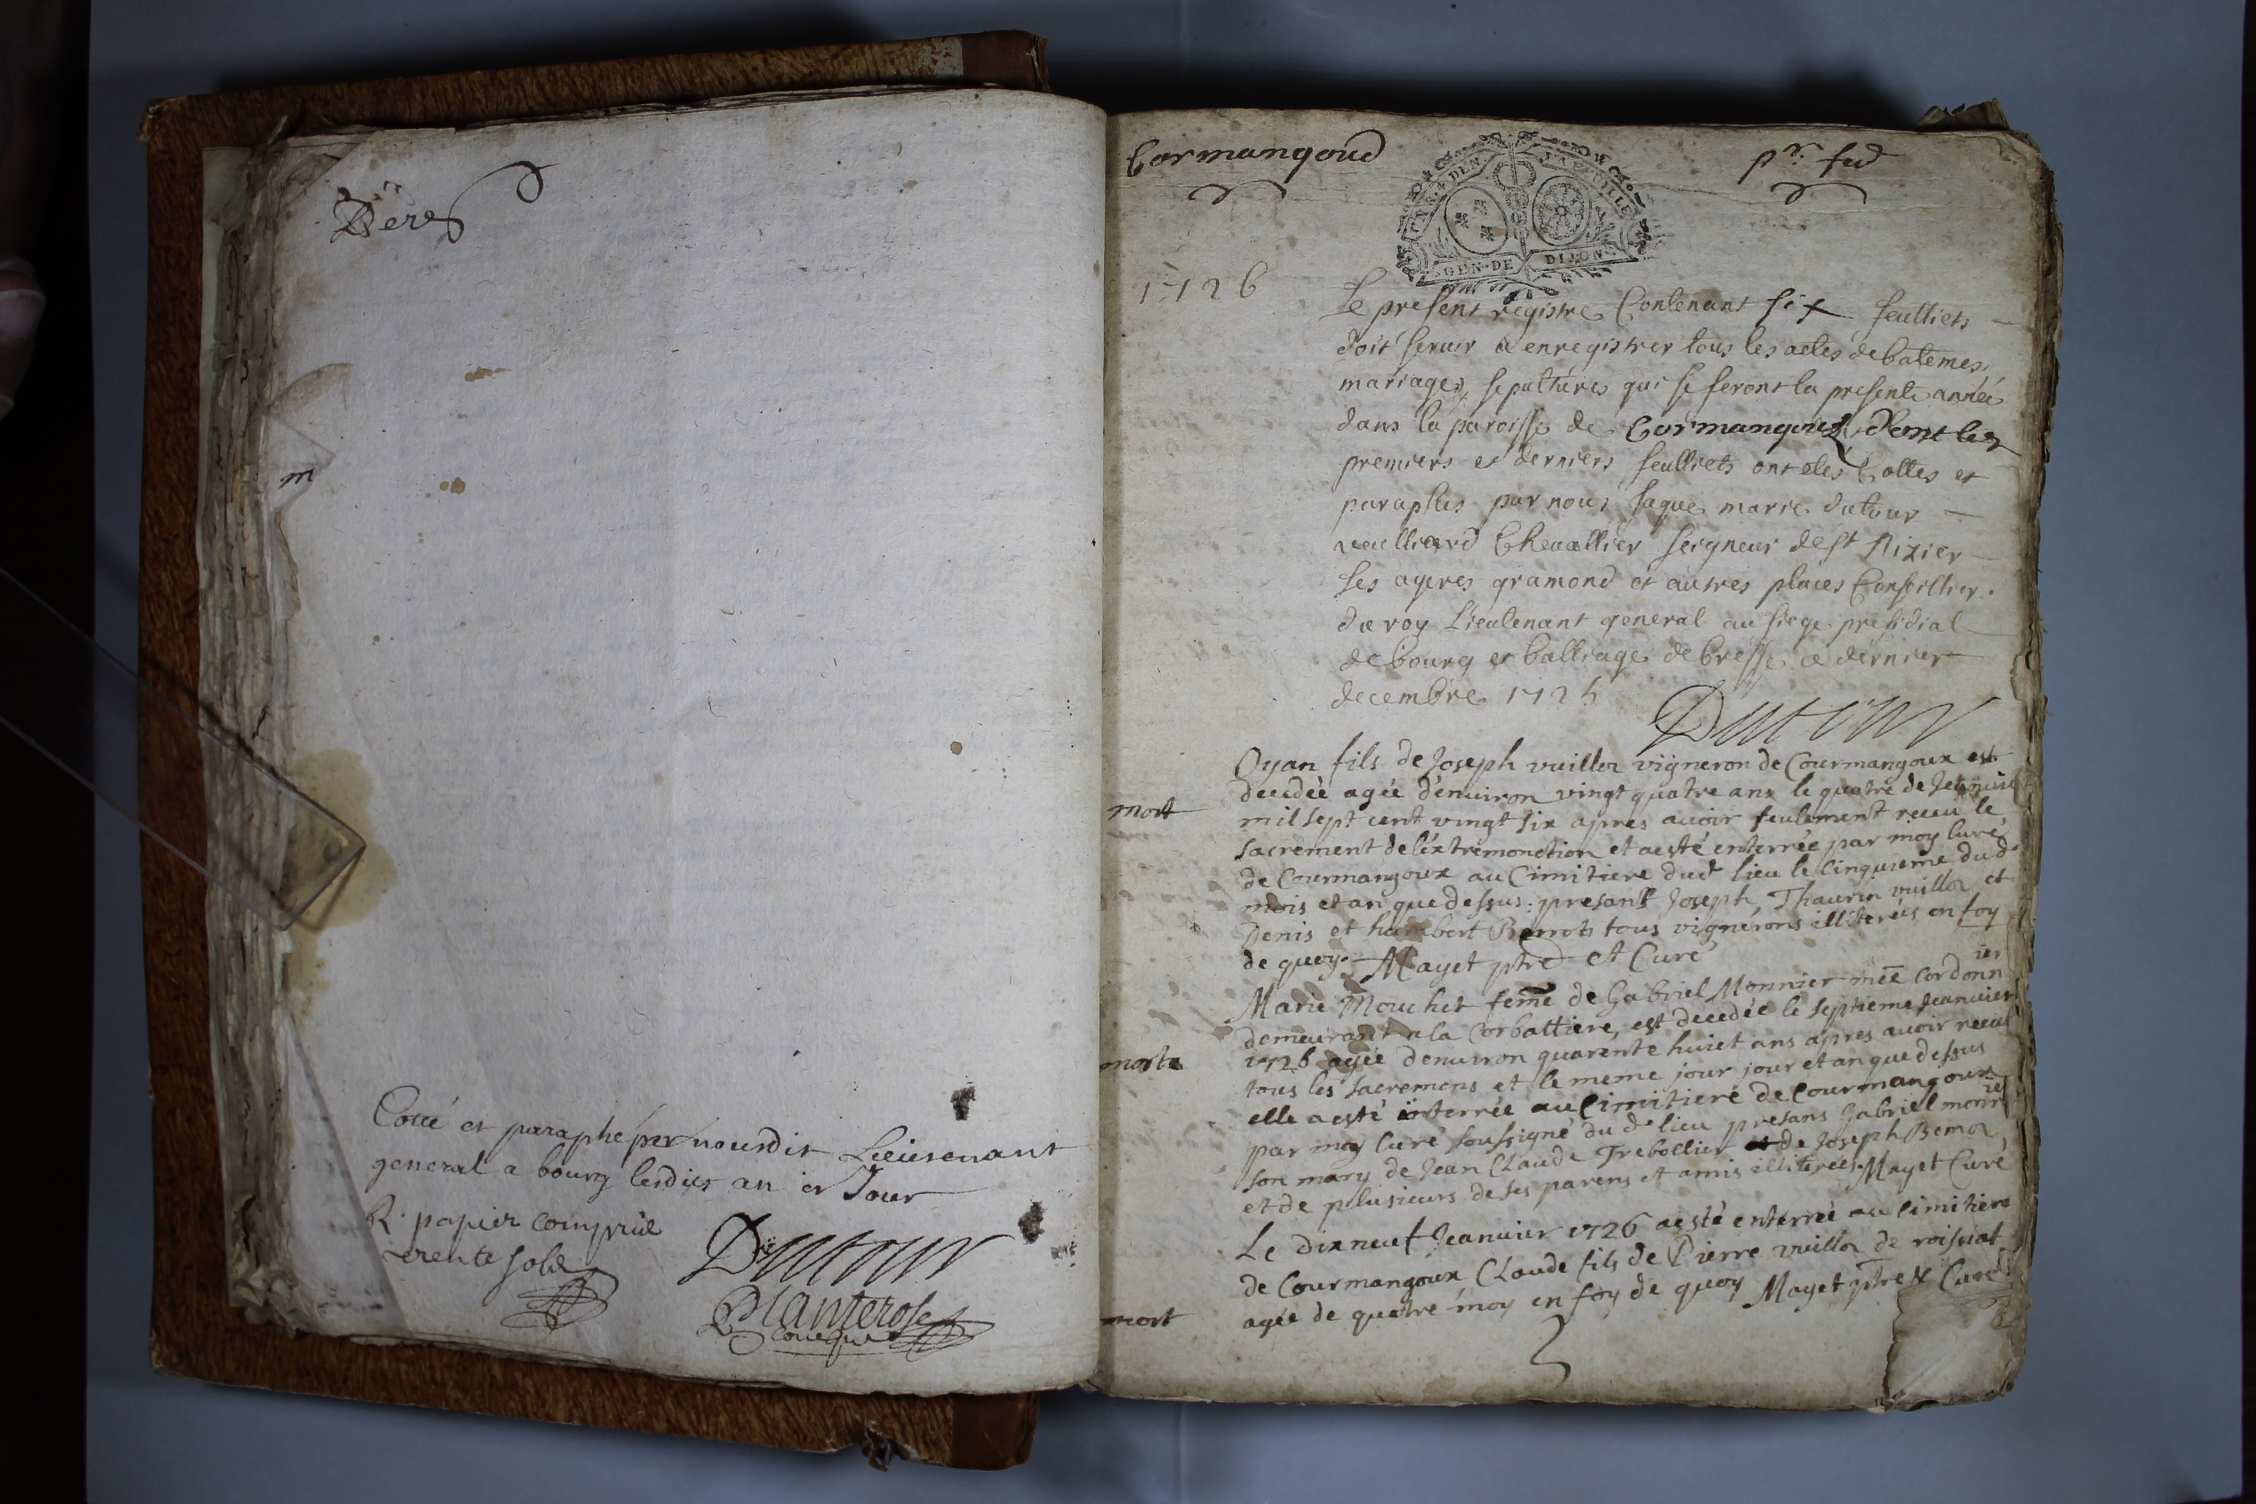 Der
m
Cotté et paraphé par nousdit Lieutenant
general a bourg lesdits an et Jour
R. papier compris
trente sols
Dutour
Planterose
Cormangoud
pr. feul
GEN. DE DIJON
1726
Le present registre Contenant six feulliets
doit servir a enregistrer tous les actes de batemes
mariages, sepultures qui se feront la presente année
dans la paroisse de Cormangoux dont les
premiers et derniers feulliets ont étés Cottes et
paraphes par nous Jaque marie dutour
vuilliard Chevallier seigneur de st Nizier
les ayeres gramond et autres places Conseillier
du roy Lieutenant general au siege presidial
de bourg et balliage de bresse ce dernier
decembre 1725
Dutour
Oyan fils de Joseph vuillod vigneron de Courmangoux est
decedée agée d'environ vingt quatre ans le quatre de Jeanvier
mort
mil sept cent vingt six apres avoir seulement receu le
sacrement de l'extremonction et aesté enterrée par moy curé
de Courmangoux au Cimitiere dud lieu le cinquieme dud
mois et an que dessus : presant Joseph, Thaurin vuillod et
Denis et humbert Perrots tous vignerons illiterées en foy
de quoy. Mayet ptre et Curé
Marie Mouchet feme de Gabriel Monnier mee cordonnier
demeurant a la Corbattiere, est decedée le septieme Jeanvier
morte
1726 agée denviron quarente huict ans apres avoir receu
tous les sacremens et le meme jour jour et an que dessus
elle aesté interrée au Cimitiere de Courmangoux
par moy curé soussigné du d lieu presans Gabriel monnier
son mary de Jean Claude Trebollier de Joseph Bemod
et de plusieurs de ses parens et amis illiterées. Mayet Curé
Le dix neuf Jeanvier 1726 aesté enterrée au Cimitiere
de Courmangoux Claude fils de Pierre vuillod de roissiat
mort
agée de quatre moy en foy de quoy Mayet ptre et Curé